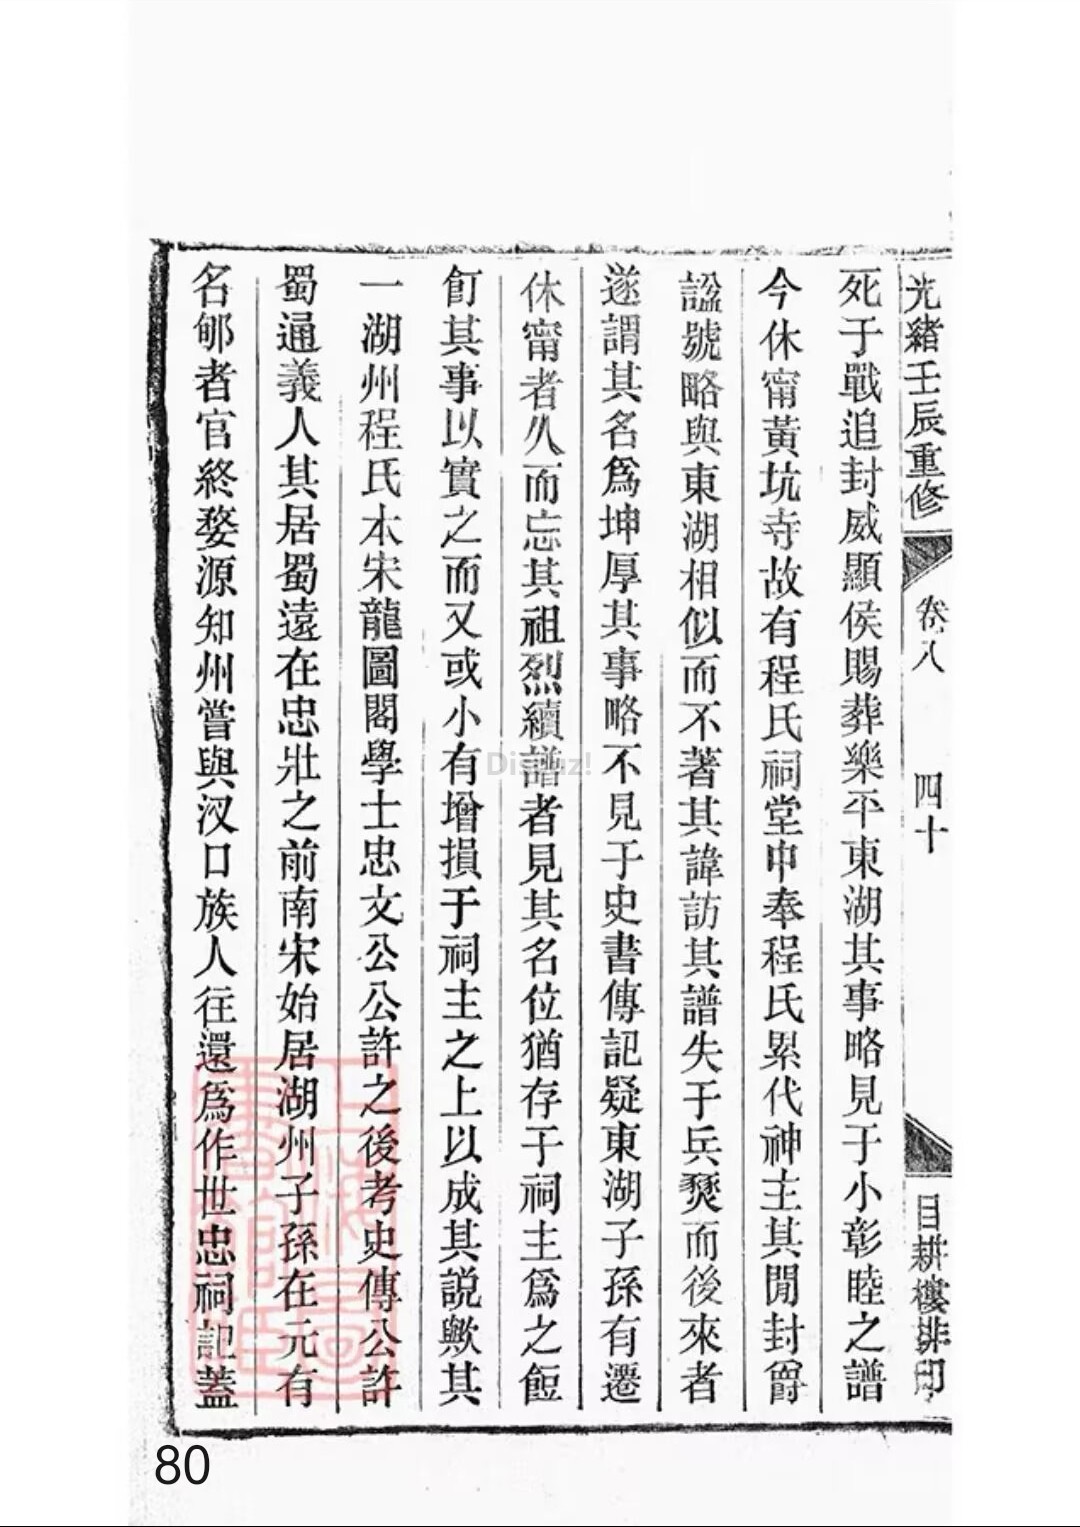 光緒壬辰重修
卷八
四十
目耕樓排印
死于戰追封威顯侯賜葬樂平東湖其事略見于小彰睦之譜
今休甯黃坑寺故有程氏祠堂中奉程氏累代神主其閒封爵
諡號略與東湖相似而不著其諱訪其譜失于兵燹而後來者
遂謂其名爲坤厚其事略不見于史書傳記疑東湖子孫有遷
休甯者久而忘其祖烈續譜者見其名位猶存于祠主爲之餖
飣其事以實之而又或小有增損于祠主之上以成其説歟其
一湖州程氏本宋龍圖閣學士忠文公公許之後考史傳公許
蜀通義人其居蜀遠在忠壯之前南宋始居湖州子孫在元有
名郇者官終婺源知州嘗與汊口族人往還爲作世忠祠記蓋
Discuz!
80